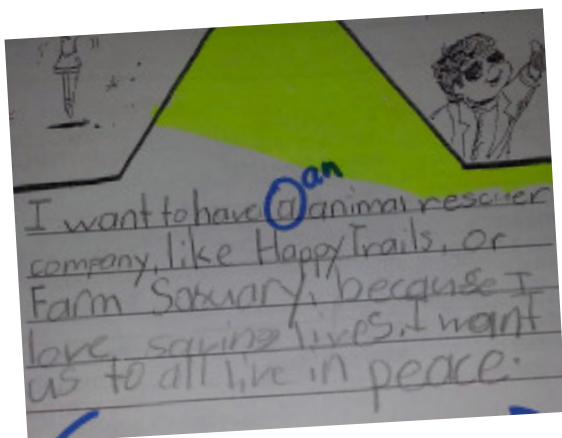 an
I want to have a animal rescuer
company, like Happy Trails, or
Farm Sasuary, because I
love saving lives. I want
us to all live in peace.